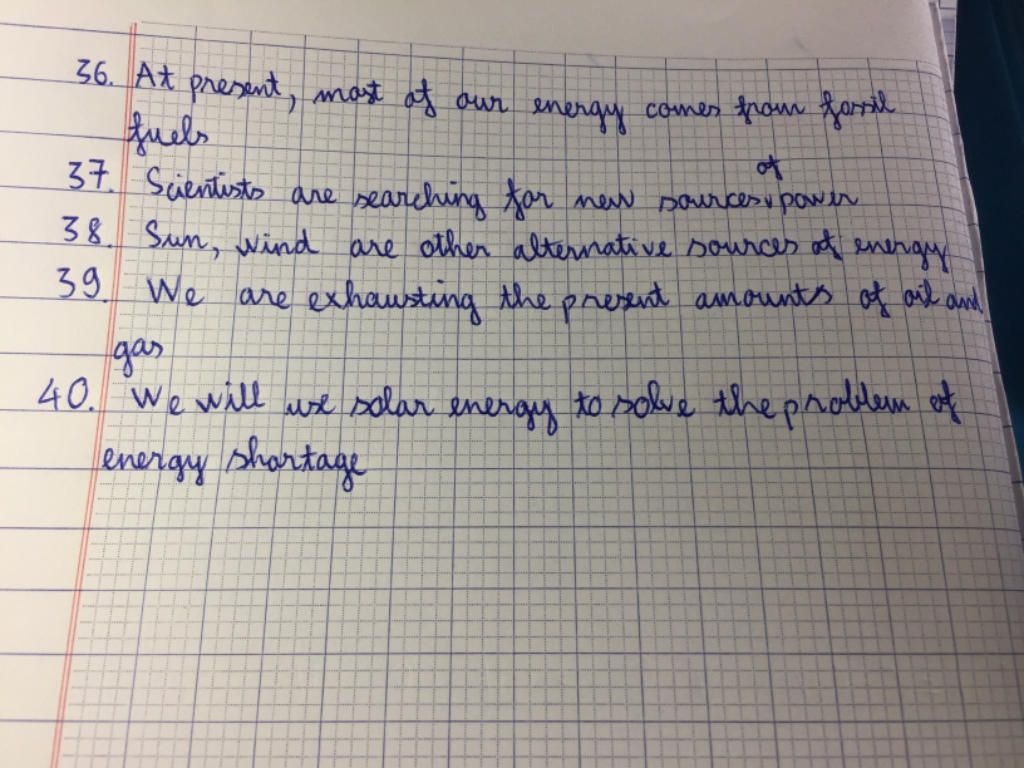 36. At present, most of our energy comes from fossil
fuels
37. Scientists are searching for new sources of power
38. Sun, wind are other alternative sources of energy
39. We are exhausting the present amounts of oil and
gas
40. We will use solar energy to solve the problem of
energy shortage